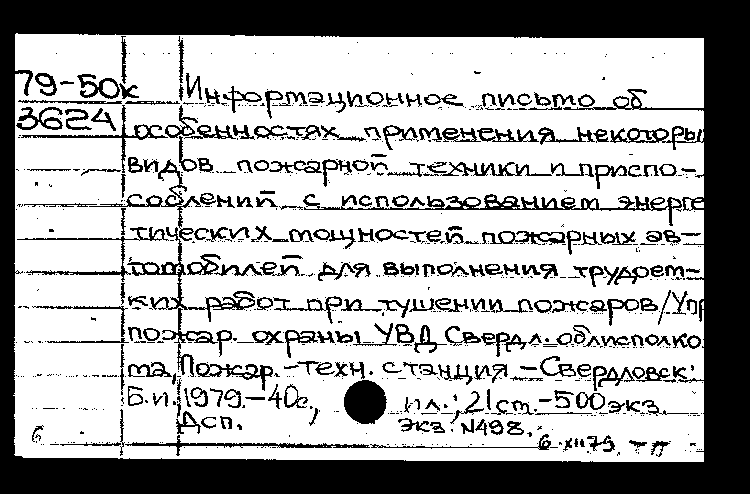 79-50к Информационное письмо об
3624 особенностях применения некоторы
видов пожарной техники и приспо-
соблений с использованием энерге
тических мощностей пожарных ав-
томобилей для выполнения трудоем-
ких работ при тушении пожаров/Упр
пожар. охраны УВД Свердл. облисполко
ма, Пожар.-техн. станция.-Свердловск:
Б.и. 1979.-40с., ил.; 21см.-500экз.
Дсп. экз. N498.
6 6 XII 79